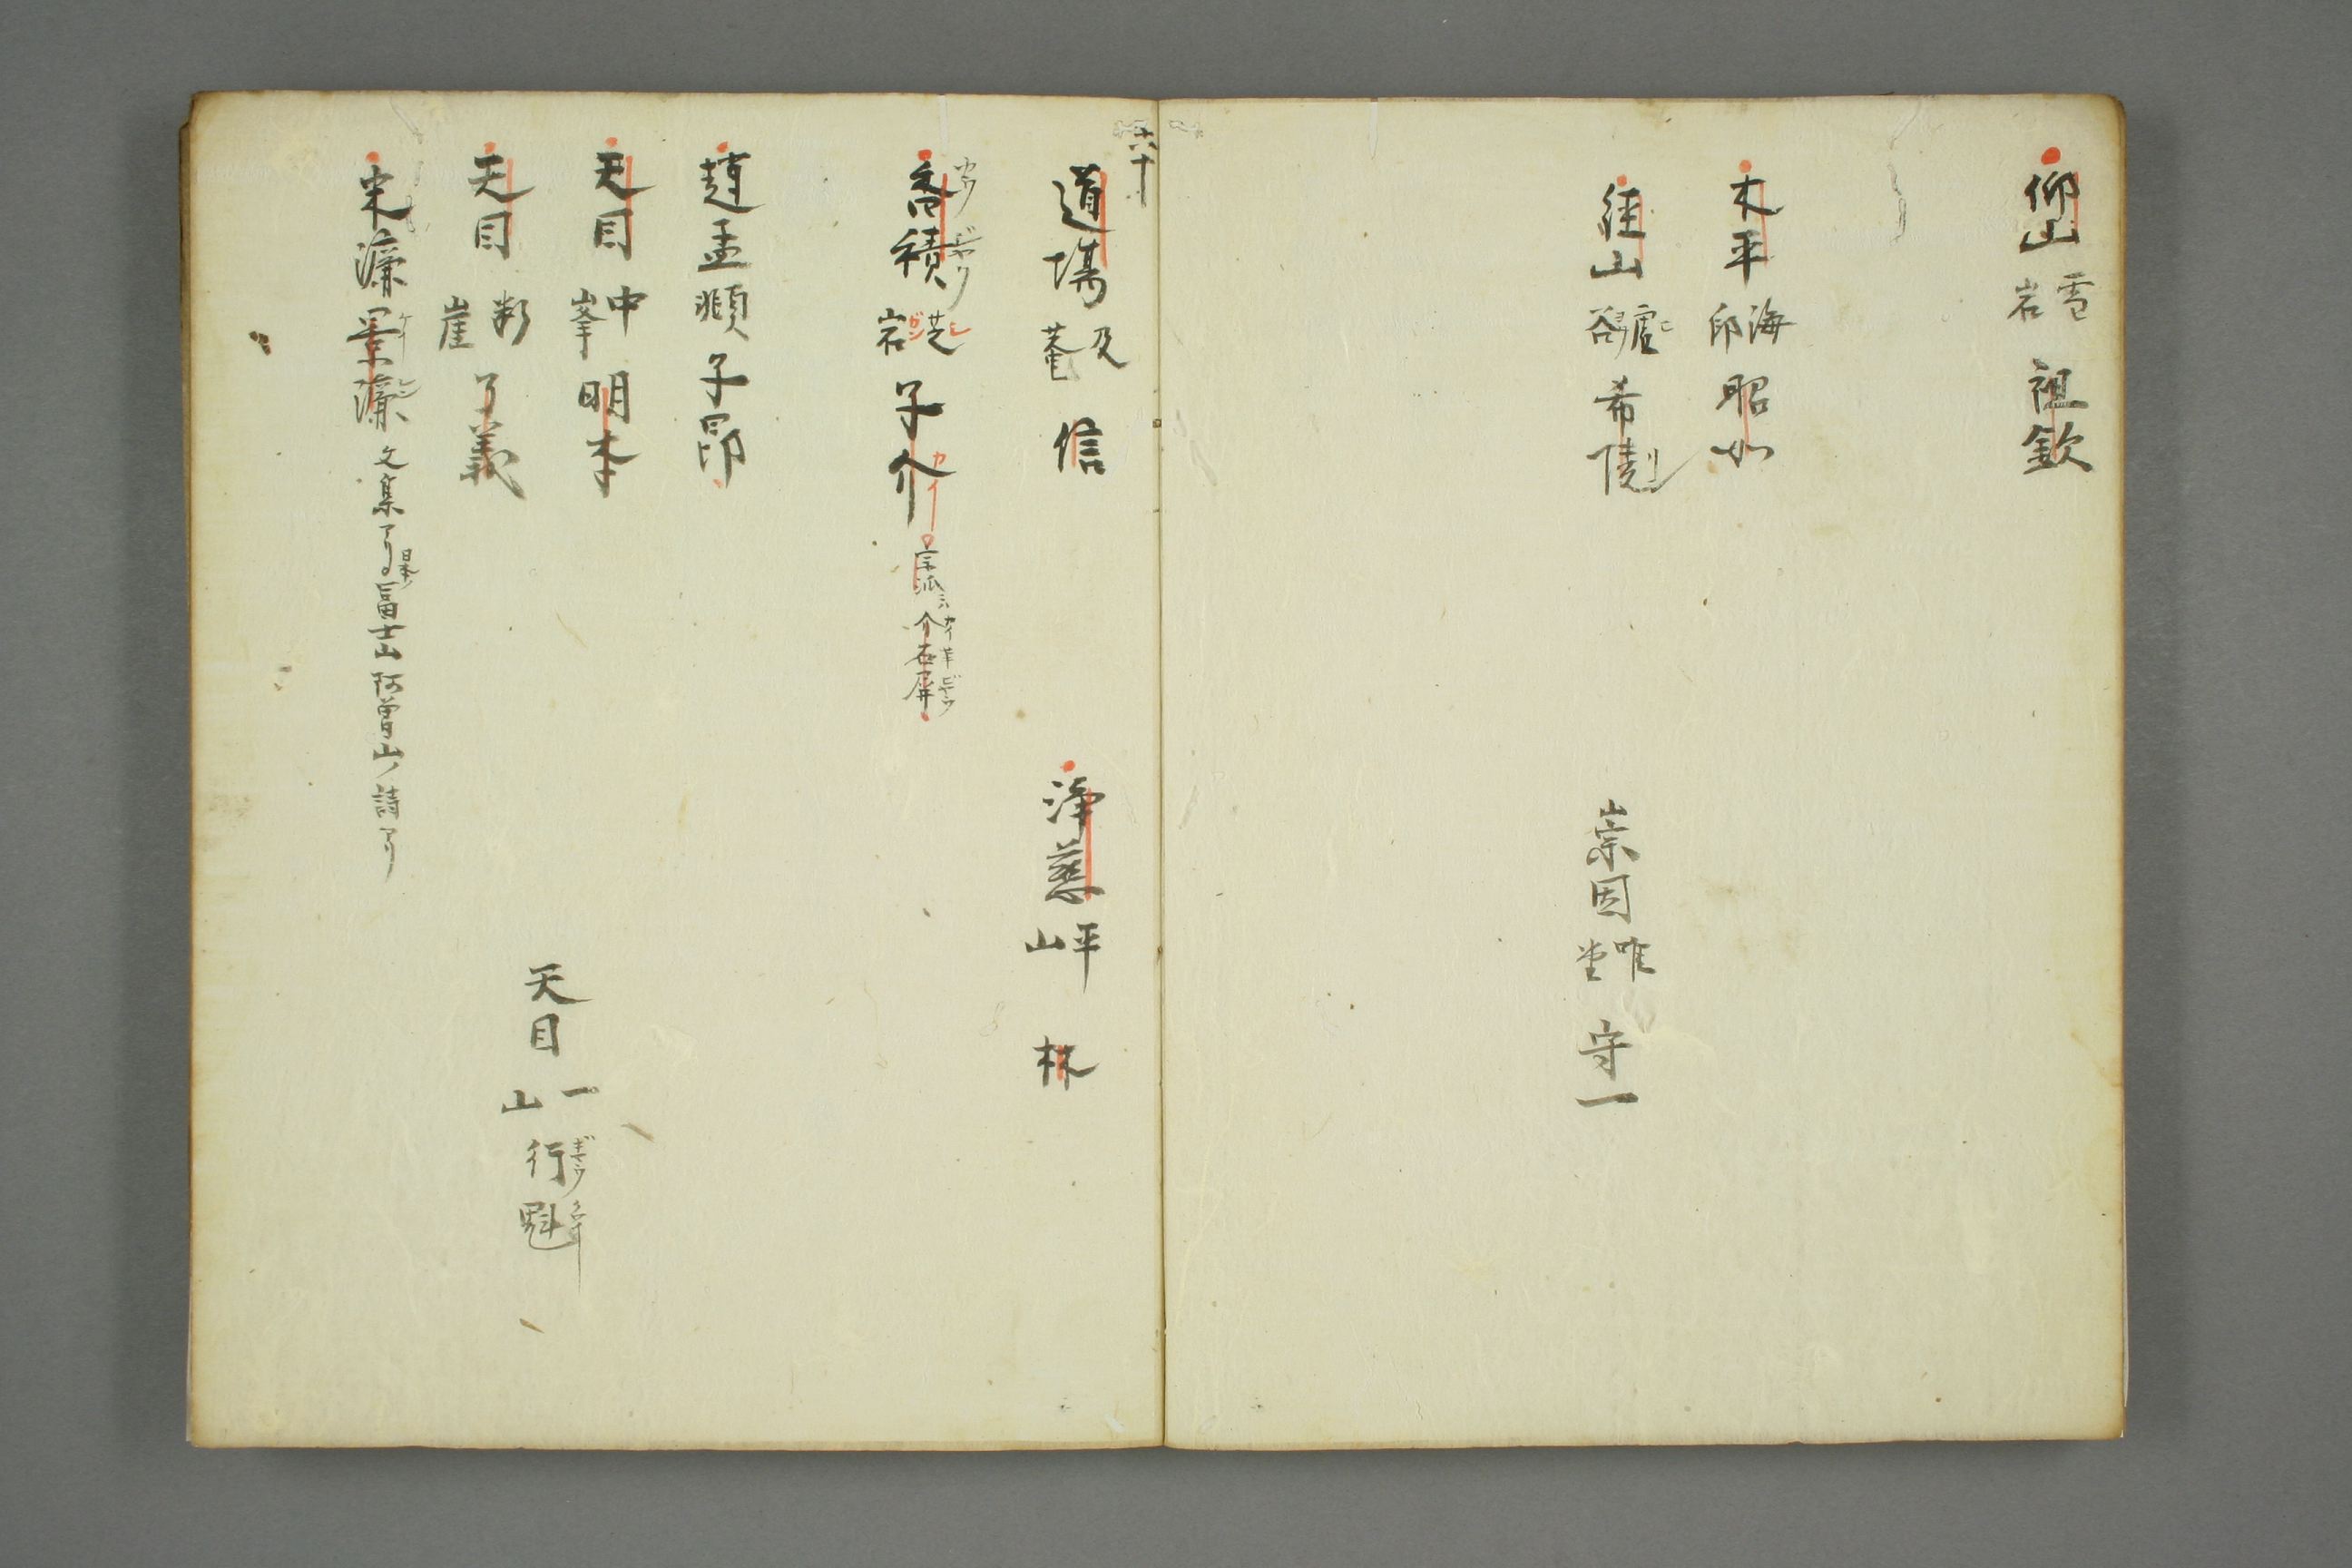 仰山 雪岩 祖欽
太平 海印 昭如
径山 虚谷 希陵
崇因 唯堂 守一
六十
道場 及菴 信
浄慈 平山 林
香積 芝岩 子介 宗派ニハ介石屏
趙孟頫 子昂
天目 中峯 明本
天目 断崖 了義
天目 一山 行魁
宋濂 景濂 文集アリ 日本ノ冨士山阿曽山ノ詩アリ